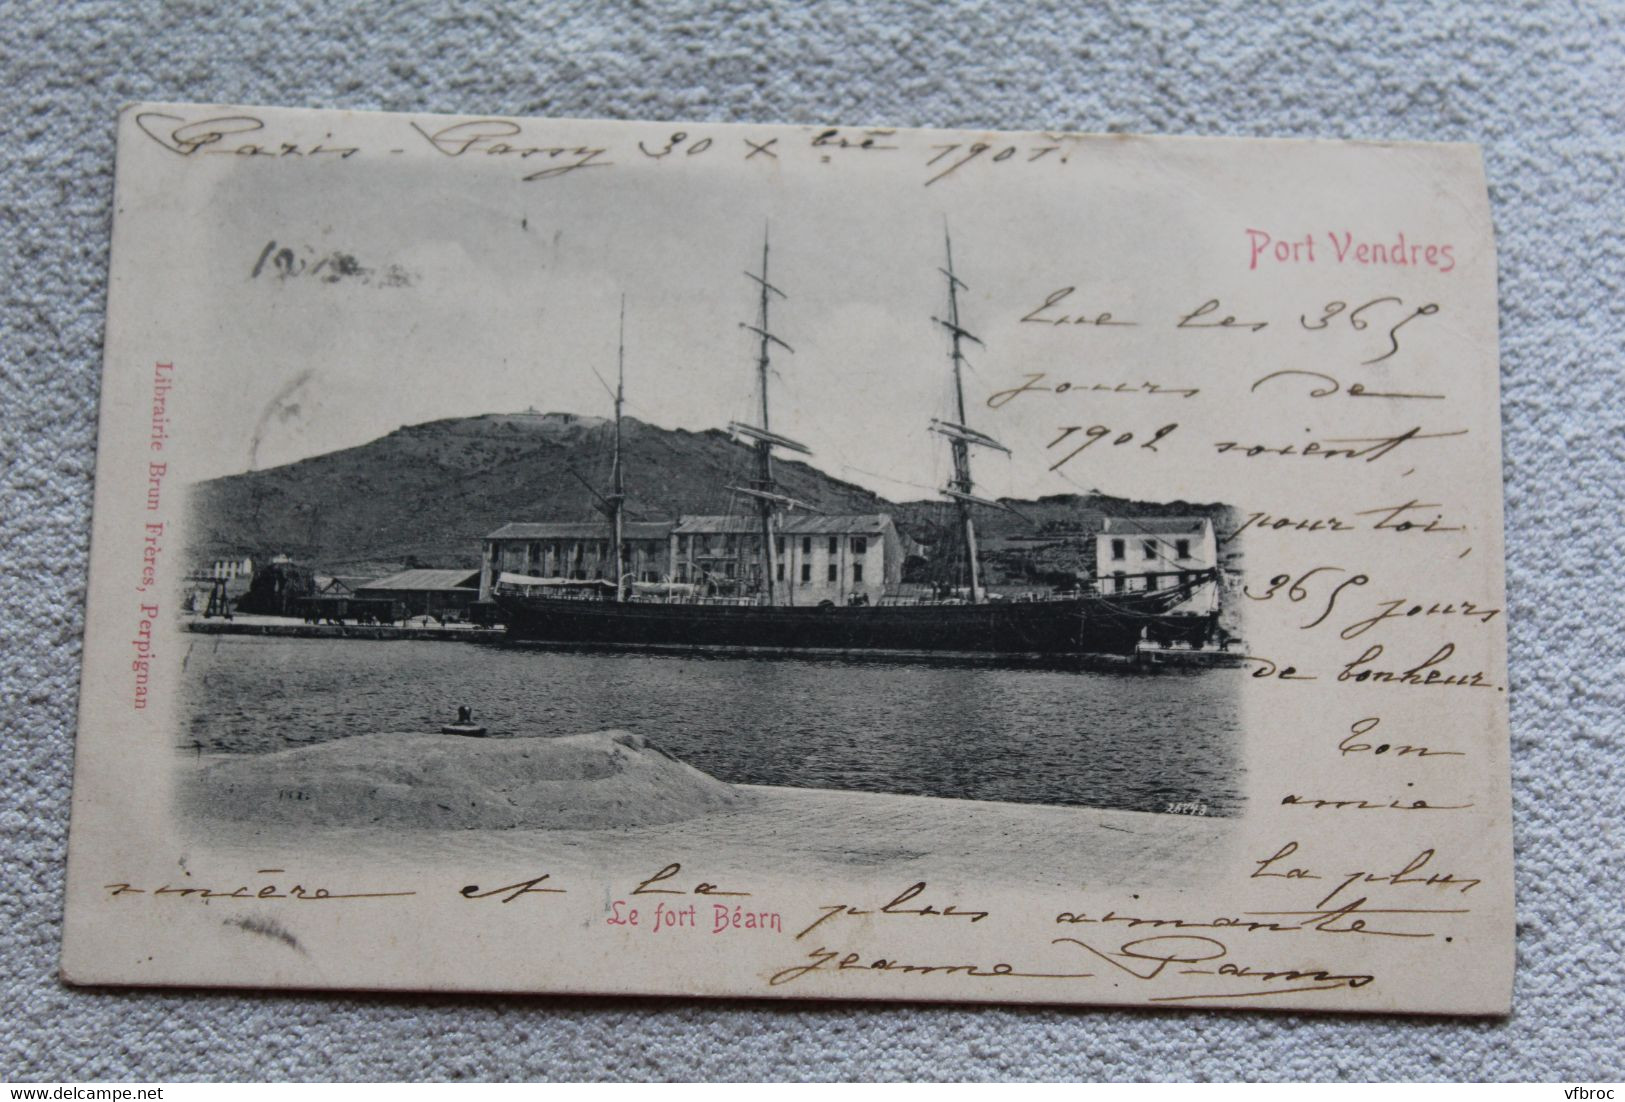 Paris - Passy 30 Xbre 1901.
Port Vendres
Que les 365
jours de
1902 soient,
pour toi,
365 jours
de bonheur.
Ton
amie
La plus
sincère et la plus aimante.
Jeanne Pams
Le fort Béarn
Librairie Brun Frères, Perpignan
delcampe.net
vfbroc